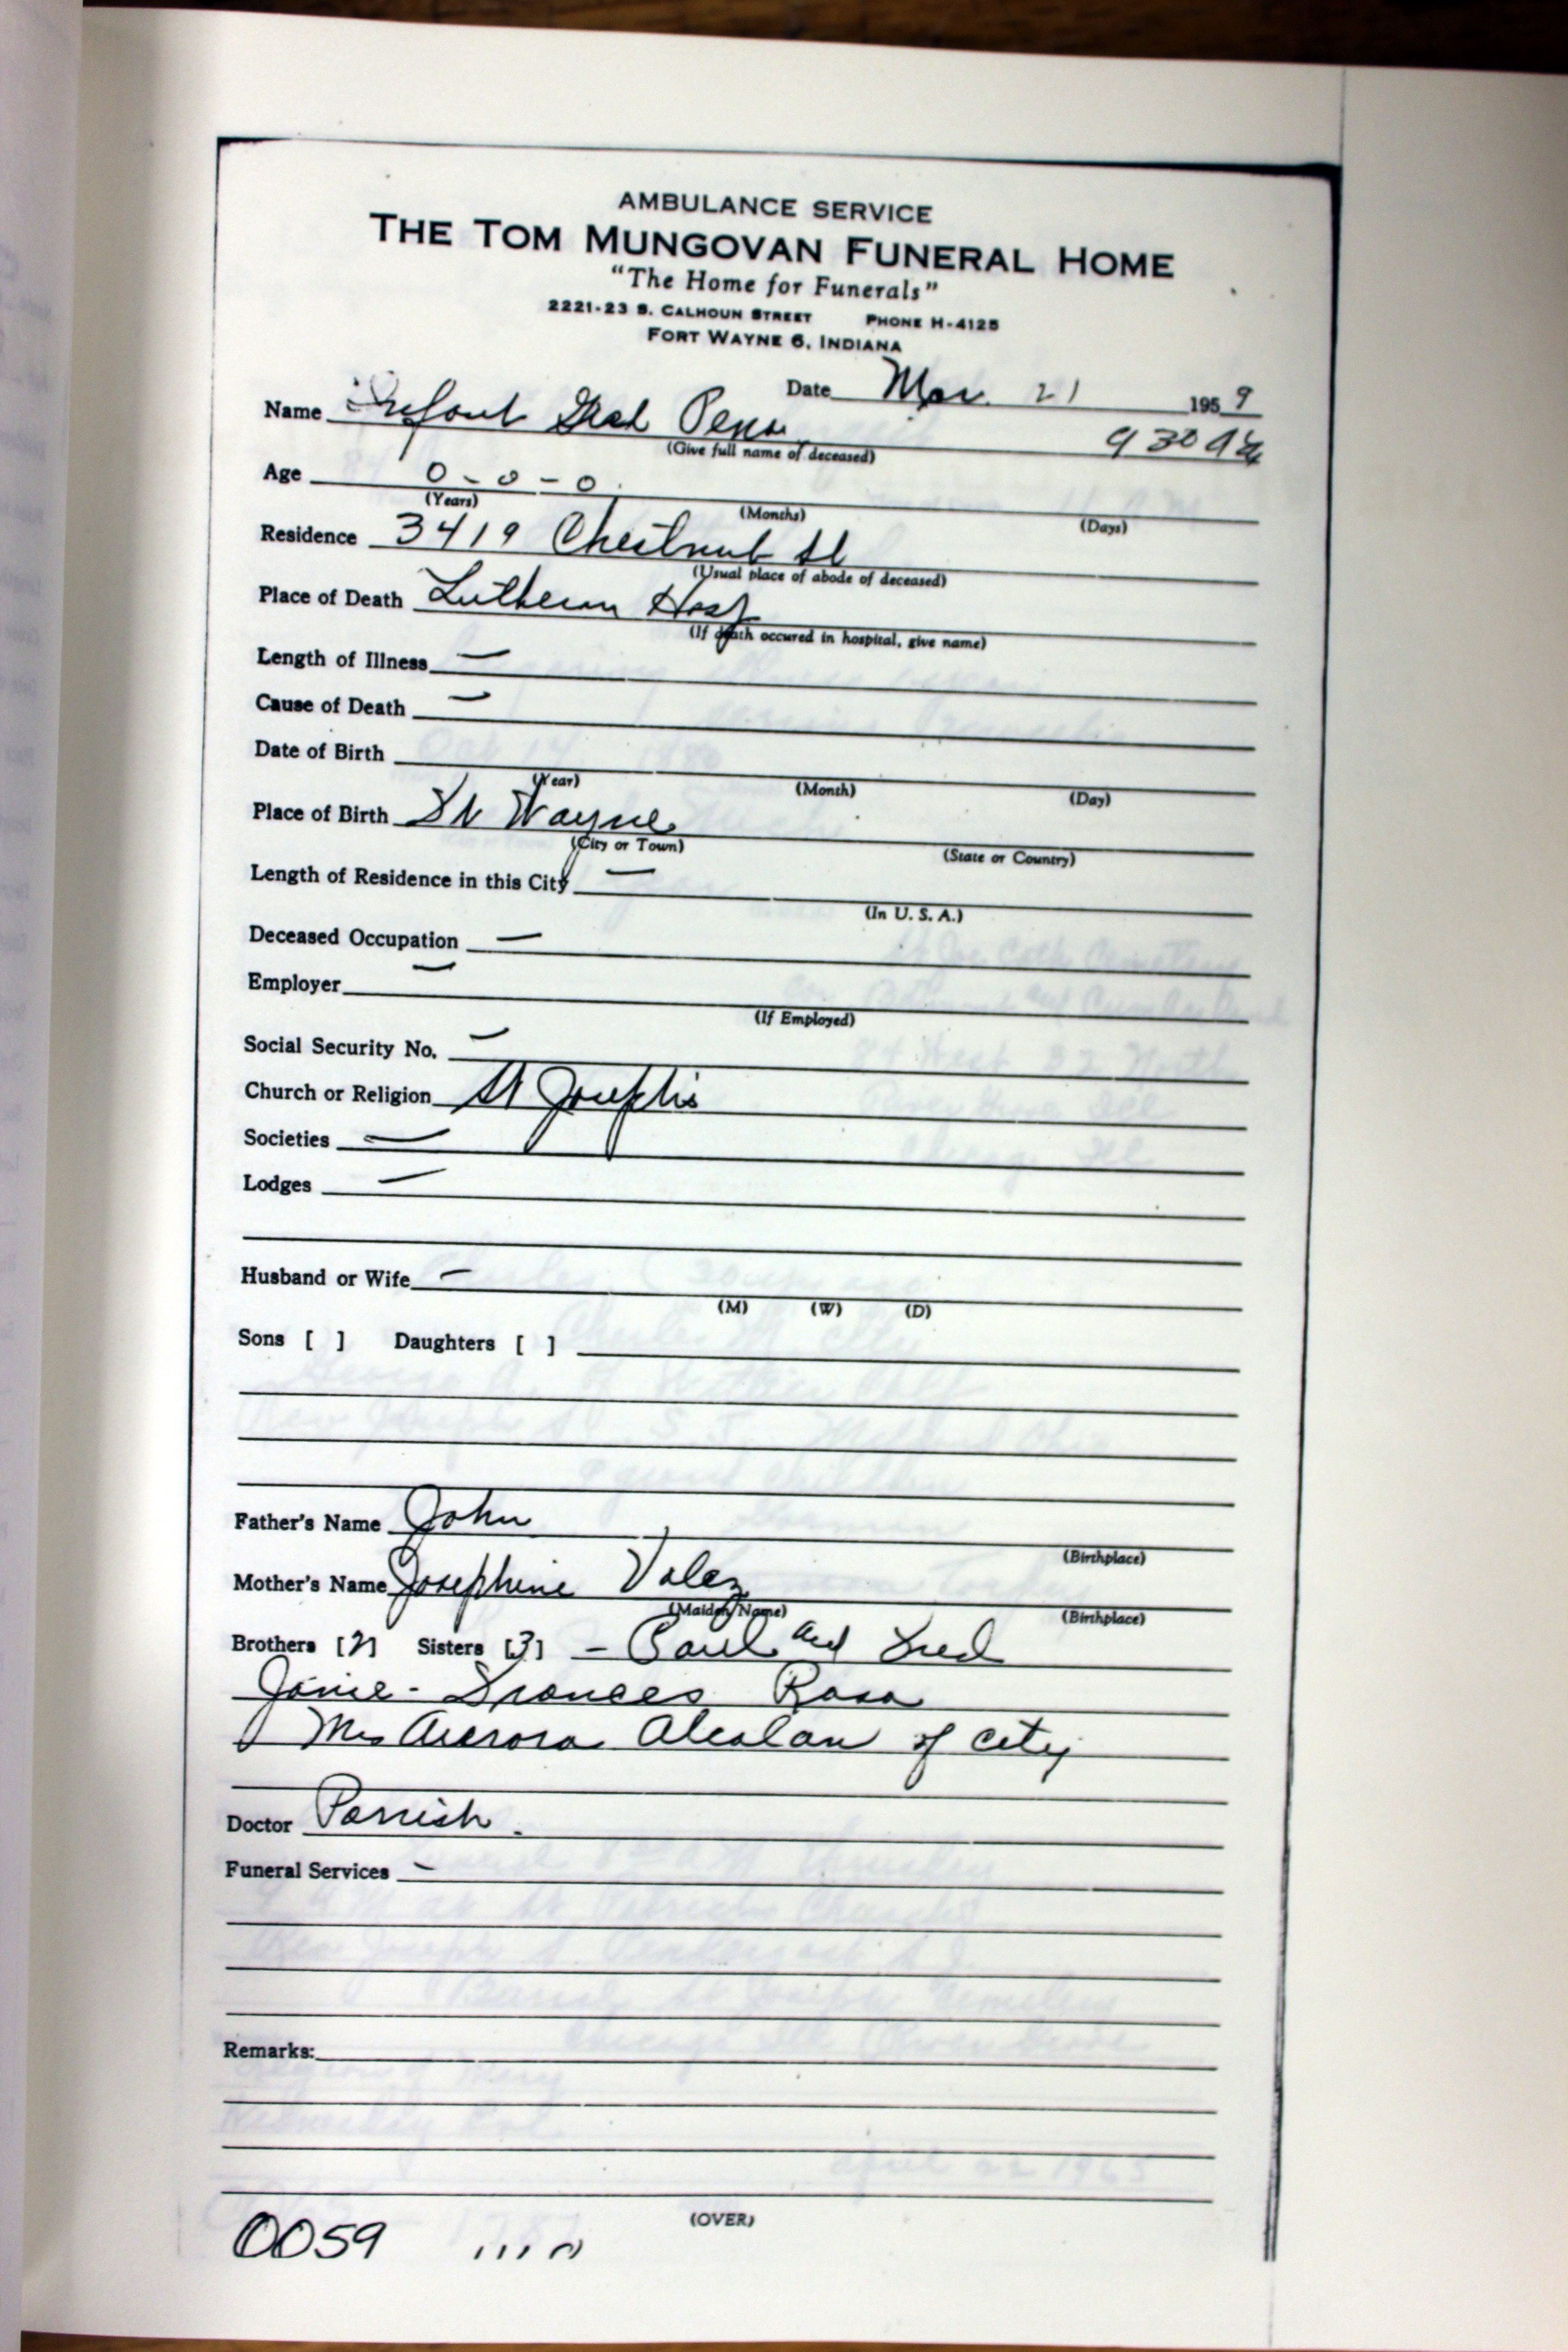 AMBULANCE SERVICE
THE TOM MUNGOVAN FUNERAL HOME
"The Home for Funerals"
2221-23 S. CALHOUN STREET PHONE H-4125
FORT WAYNE 6, INDIANA
Date Mar. 21 1959
Name Infant Pena
(Give full name of deceased)
Age 0-0-0
(Years) (Months) (Days)
Residence 3419 Chestnut St
(Usual place of abode of deceased)
Place of Death Lutheran Hosp
(If death occured in hospital, give name)
Length of Illness —
Cause of Death —
Date of Birth
(Year) (Month) (Day)
Place of Birth Ft Wayne
(City or Town) (State or Country)
Length of Residence in this City —
(In U. S. A.)
Deceased Occupation —
Employer —
(If Employed)
Social Security No. —
Church or Religion St Josephs
Societies —
Lodges —
Husband or Wife —
(M) (W) (D)
Sons [ ] Daughters [ ]
Father's Name John
(Birthplace)
Mother's Name Josephine Valez
(Maiden Name) (Birthplace)
Brothers [2] Sisters [3] - Paul and Fred
Janie - Frances Rosa
Mrs Aurora of city
Doctor Parrish.
Funeral Services —
Remarks:
(OVER)
0059